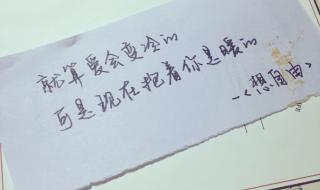 就算爱会变冷的
可是现在抱着你是暖的
-<想自由>